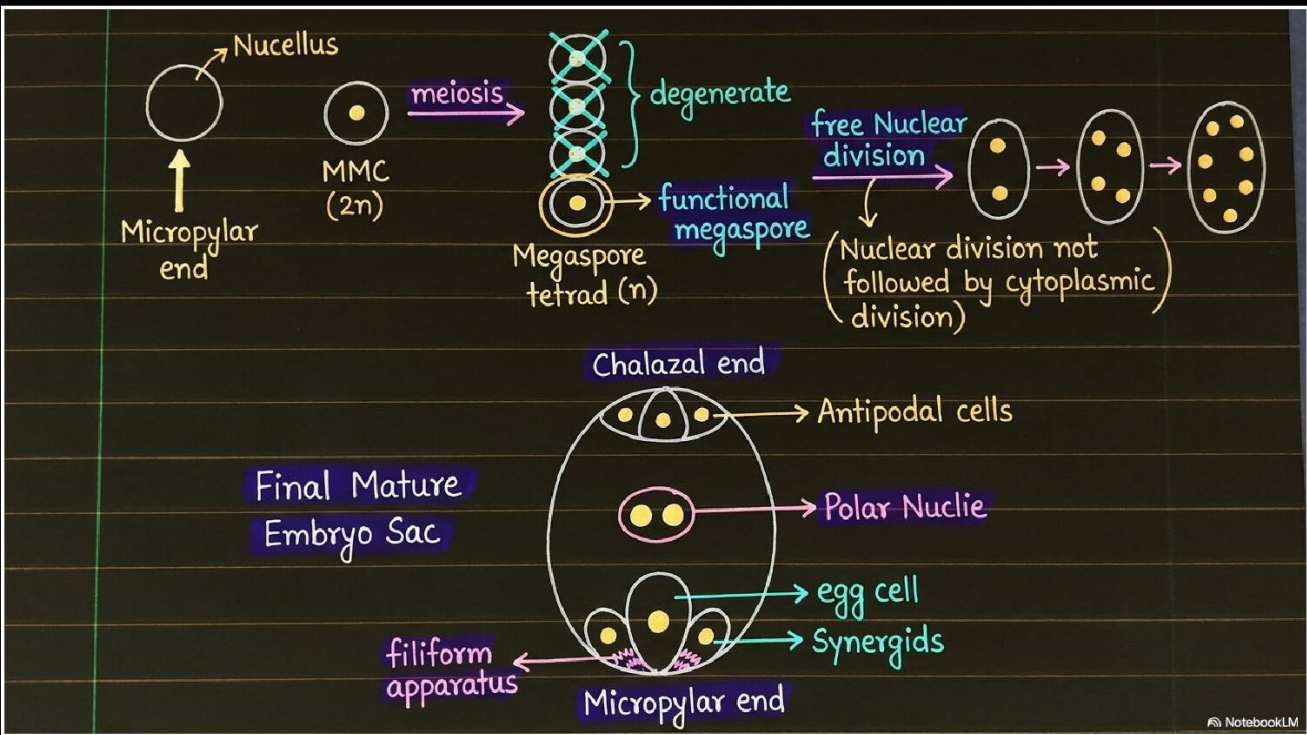 Nucellus
Micropylar
end
MMC
(2n)
meiosis
degenerate
functional
megaspore
Megaspore
tetrad (n)
free Nuclear
division
(Nuclear division not
followed by cytoplasmic
division)
Chalazal end
Antipodal cells
Final Mature
Embryo Sac
Polar Nuclie
egg cell
Synergids
filiform
apparatus
Micropylar end
NotebookLM